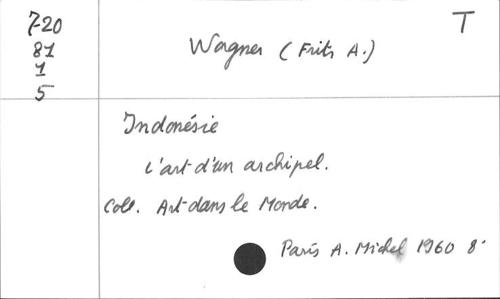 720
81
1
5
T
Wagner (Frits A.)
Indonésie
L'art d'un archipel.
Coll. Art dans le Monde.
Paris A. Michel 1960 8°